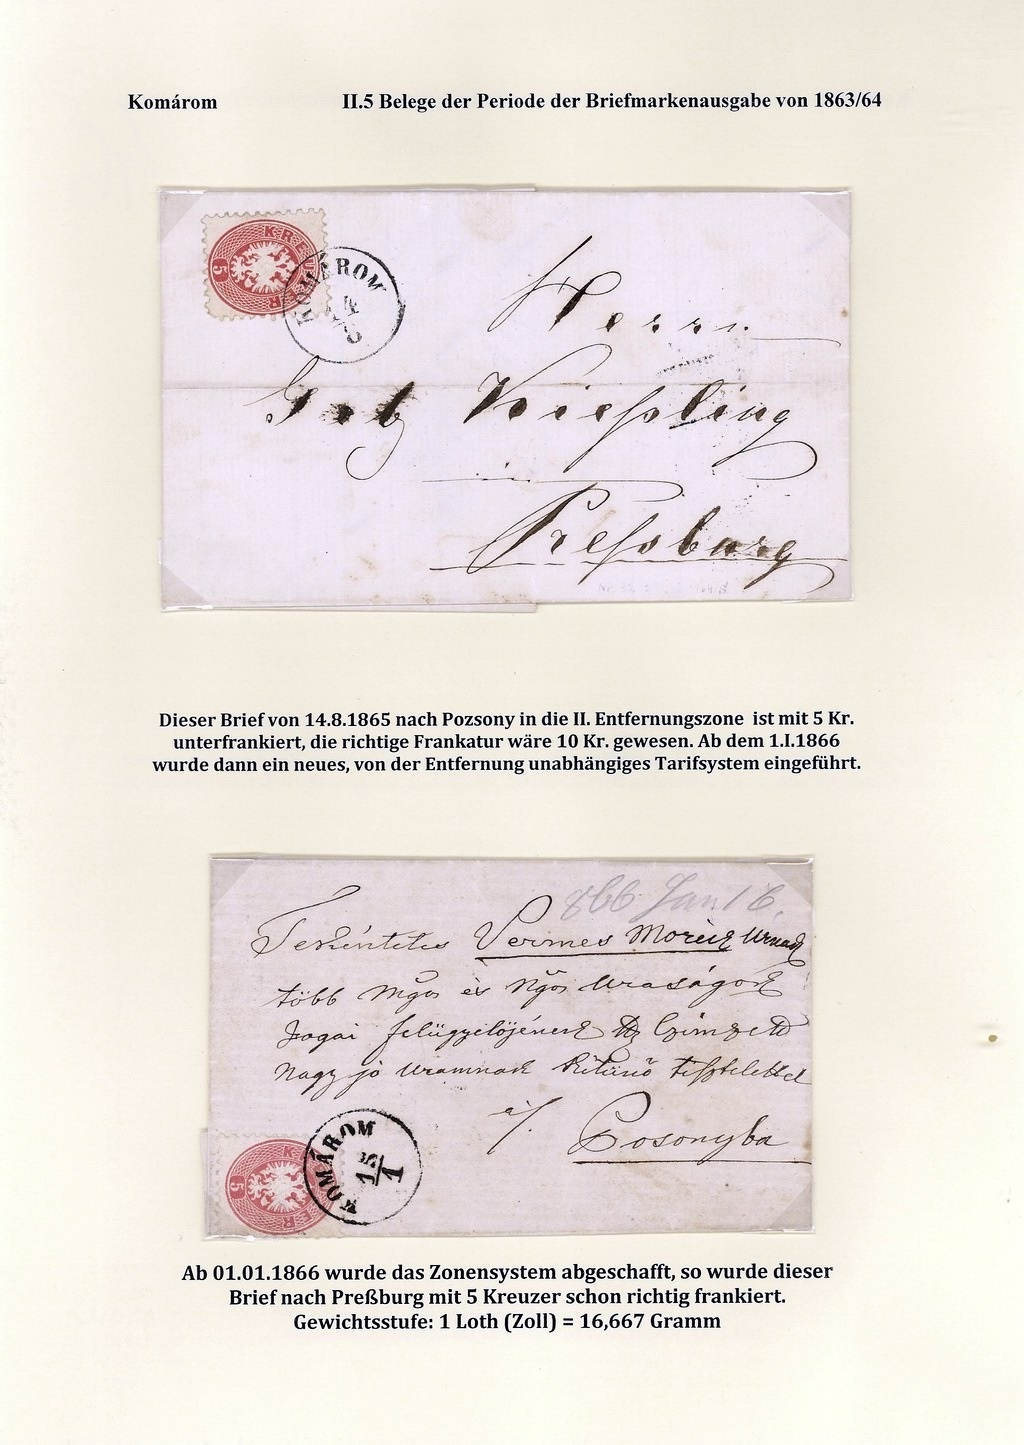 Komárom II.5 Belege der Periode der Briefmarkenausgabe von 1863/64
5 KREUZER
KOMÁROM
14/8
Herrn
Kießling
in
Preßburg
Dieser Brief von 14.8.1865 nach Pozsony in die II. Entfernungszone ist mit 5 Kr.
unterfrankiert, die richtige Frankatur wäre 10 Kr. gewesen. Ab dem 1.I.1866
wurde dann ein neues, von der Entfernung unabhängiges Tarifsystem eingeführt.
866 Jan 16.
Tekintetes Vermes Moricz Urnak
több Mgos és Ngos Uraságok
Jogai felügyelőjének Czimzett
Nagy jó Uramnak kitünő tisztelettel
Posonyba
5 KREUZER
KOMÁROM
15/1
Ab 01.01.1866 wurde das Zonensystem abgeschafft, so wurde dieser
Brief nach Preßburg mit 5 Kreuzer schon richtig frankiert.
Gewichtsstufe: 1 Loth (Zoll) = 16,667 Gramm